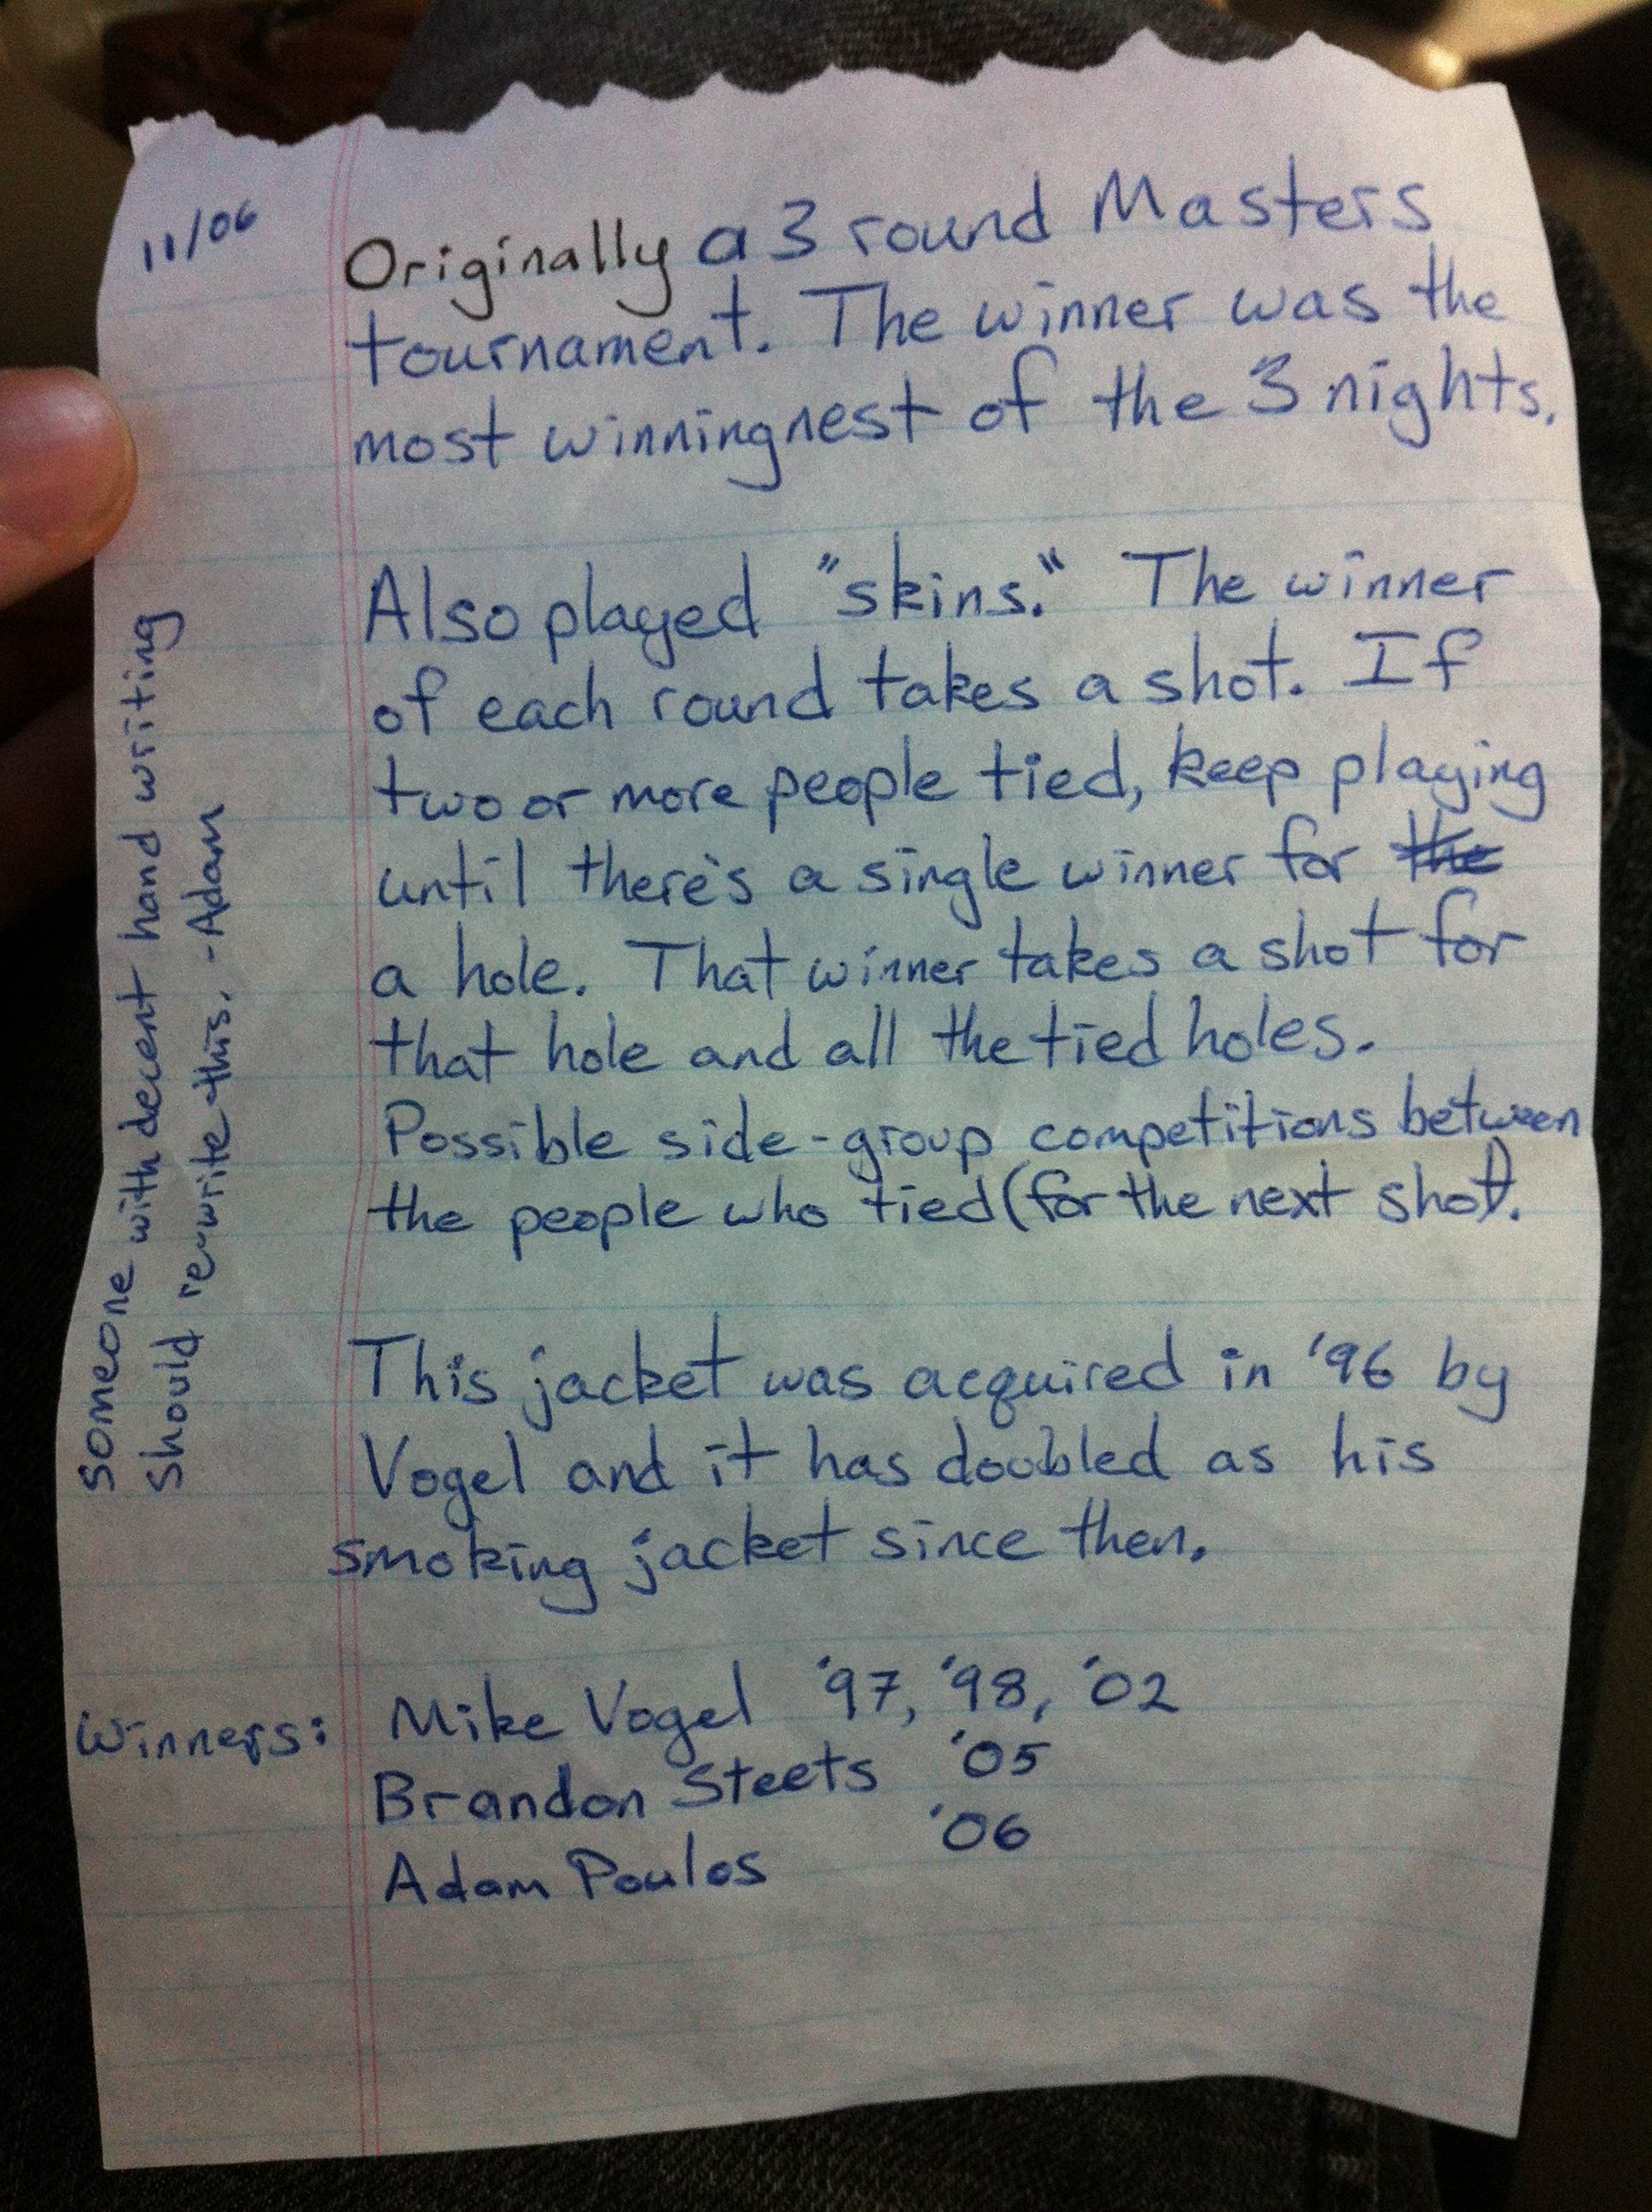 11/06
Originally a 3 round Masters
tournament. The winner was the
most winningnest of the 3 nights.
Also played "skins." The winner
of each round takes a shot. If
two or more people tied, keep playing
until there's a single winner for the
a hole. That winner takes a shot for
that hole and all the tied holes.
Possible side-group competitions between
the people who tied (for the next shot).
This jacket was acquired in '96 by
Vogel and it has doubled as his
smoking jacket since then.
Winners: Mike Vogel '97, '98, '02
Brandon Steets '05
Adam Poulos '06
Someone with decent hand writing
should rewrite this. -Adam